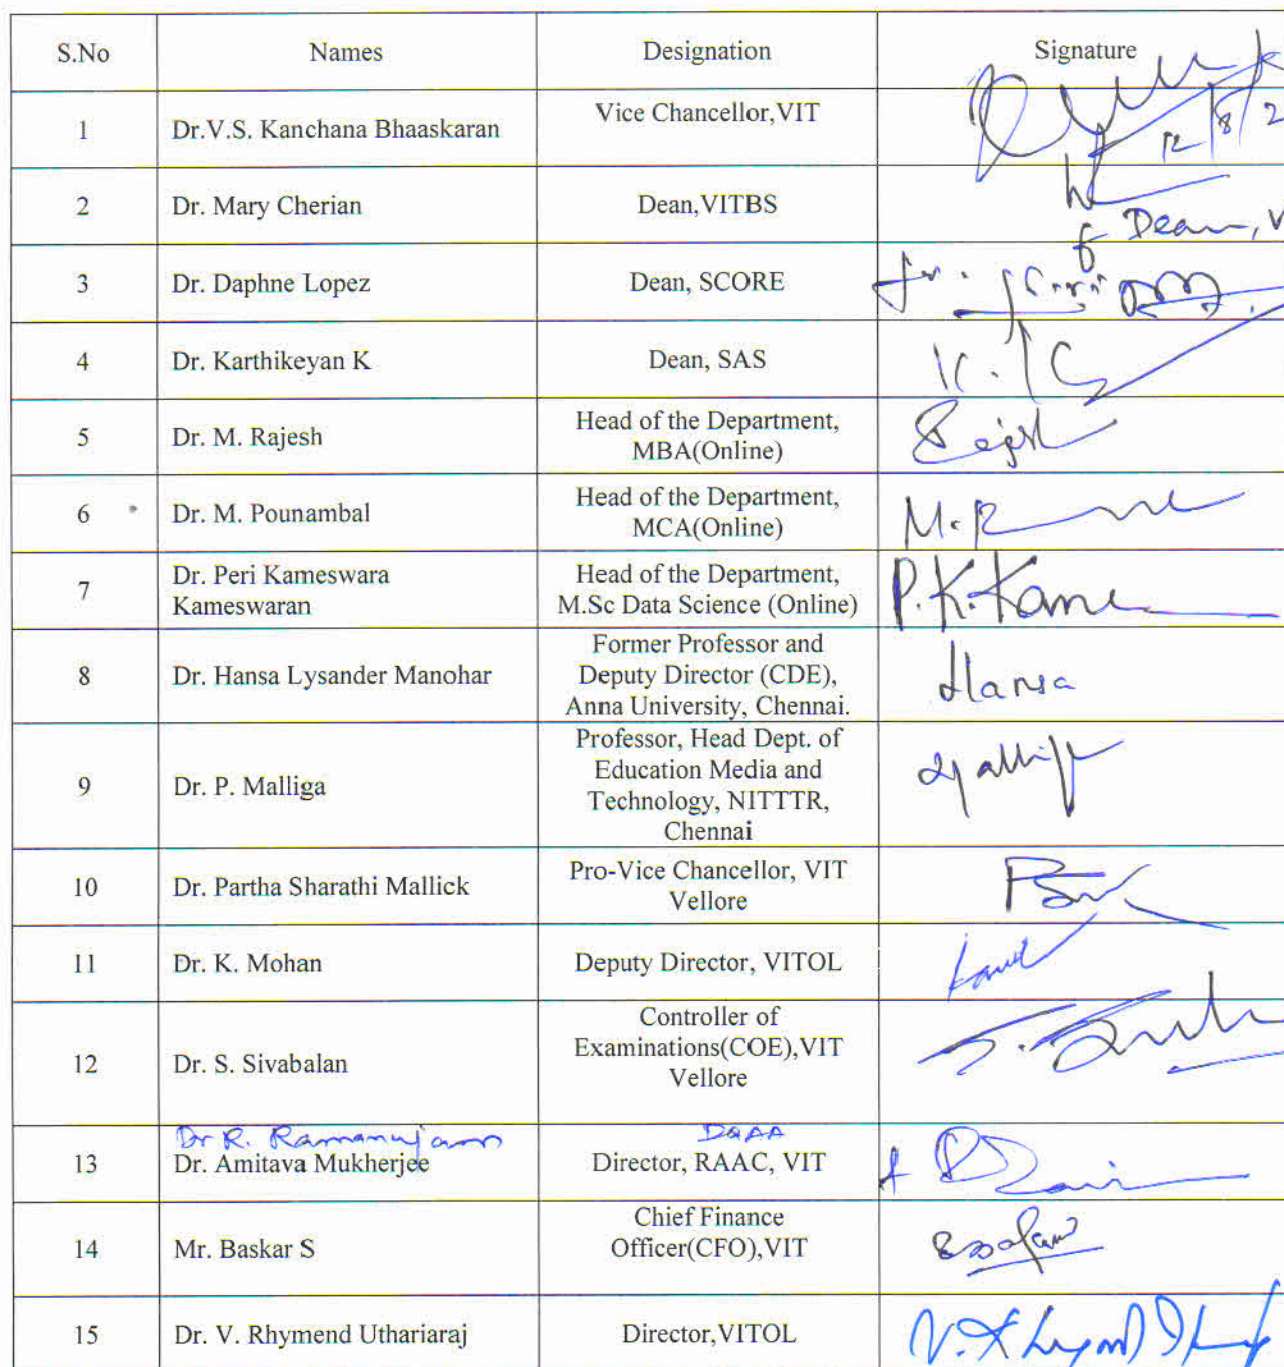 S.No Names Designation Signature
1 Dr.V.S. Kanchana Bhaaskaran Vice Chancellor,VIT
12/8/2
2 Dr. Mary Cherian Dean,VITBS
Dean, V
3 Dr. Daphne Lopez Dean, SCORE
4 Dr. Karthikeyan K Dean, SAS
5 Dr. M. Rajesh Head of the Department,
MBA(Online)
Rajesh
6 Dr. M. Pounambal Head of the Department,
MCA(Online)
7 Dr. Peri Kameswara
Kameswaran
Head of the Department,
M.Sc Data Science (Online)
P.K.Kame
8 Dr. Hansa Lysander Manohar Former Professor and
Deputy Director (CDE),
Anna University, Chennai.
Hansa
9 Dr. P. Malliga Professor, Head Dept. of
Education Media and
Technology, NITTTR,
Chennai
10 Dr. Partha Sharathi Mallick Pro-Vice Chancellor, VIT
Vellore
11 Dr. K. Mohan Deputy Director, VITOL
12 Dr. S. Sivabalan Controller of
Examinations(COE),VIT
Vellore
Dr R. Ramanujam
13 Dr. Amitava Mukherjee Director, RAAC, VIT
14 Mr. Baskar S Chief Finance
Officer(CFO),VIT
15 Dr. V. Rhymend Uthariaraj Director,VITOL